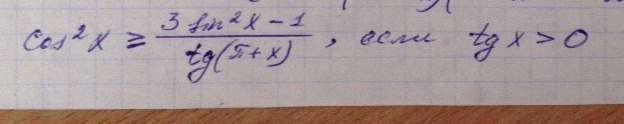 cos²x ≥ \frac{3 sin²x - 1}{tg(π + x)}, если tg x > 0